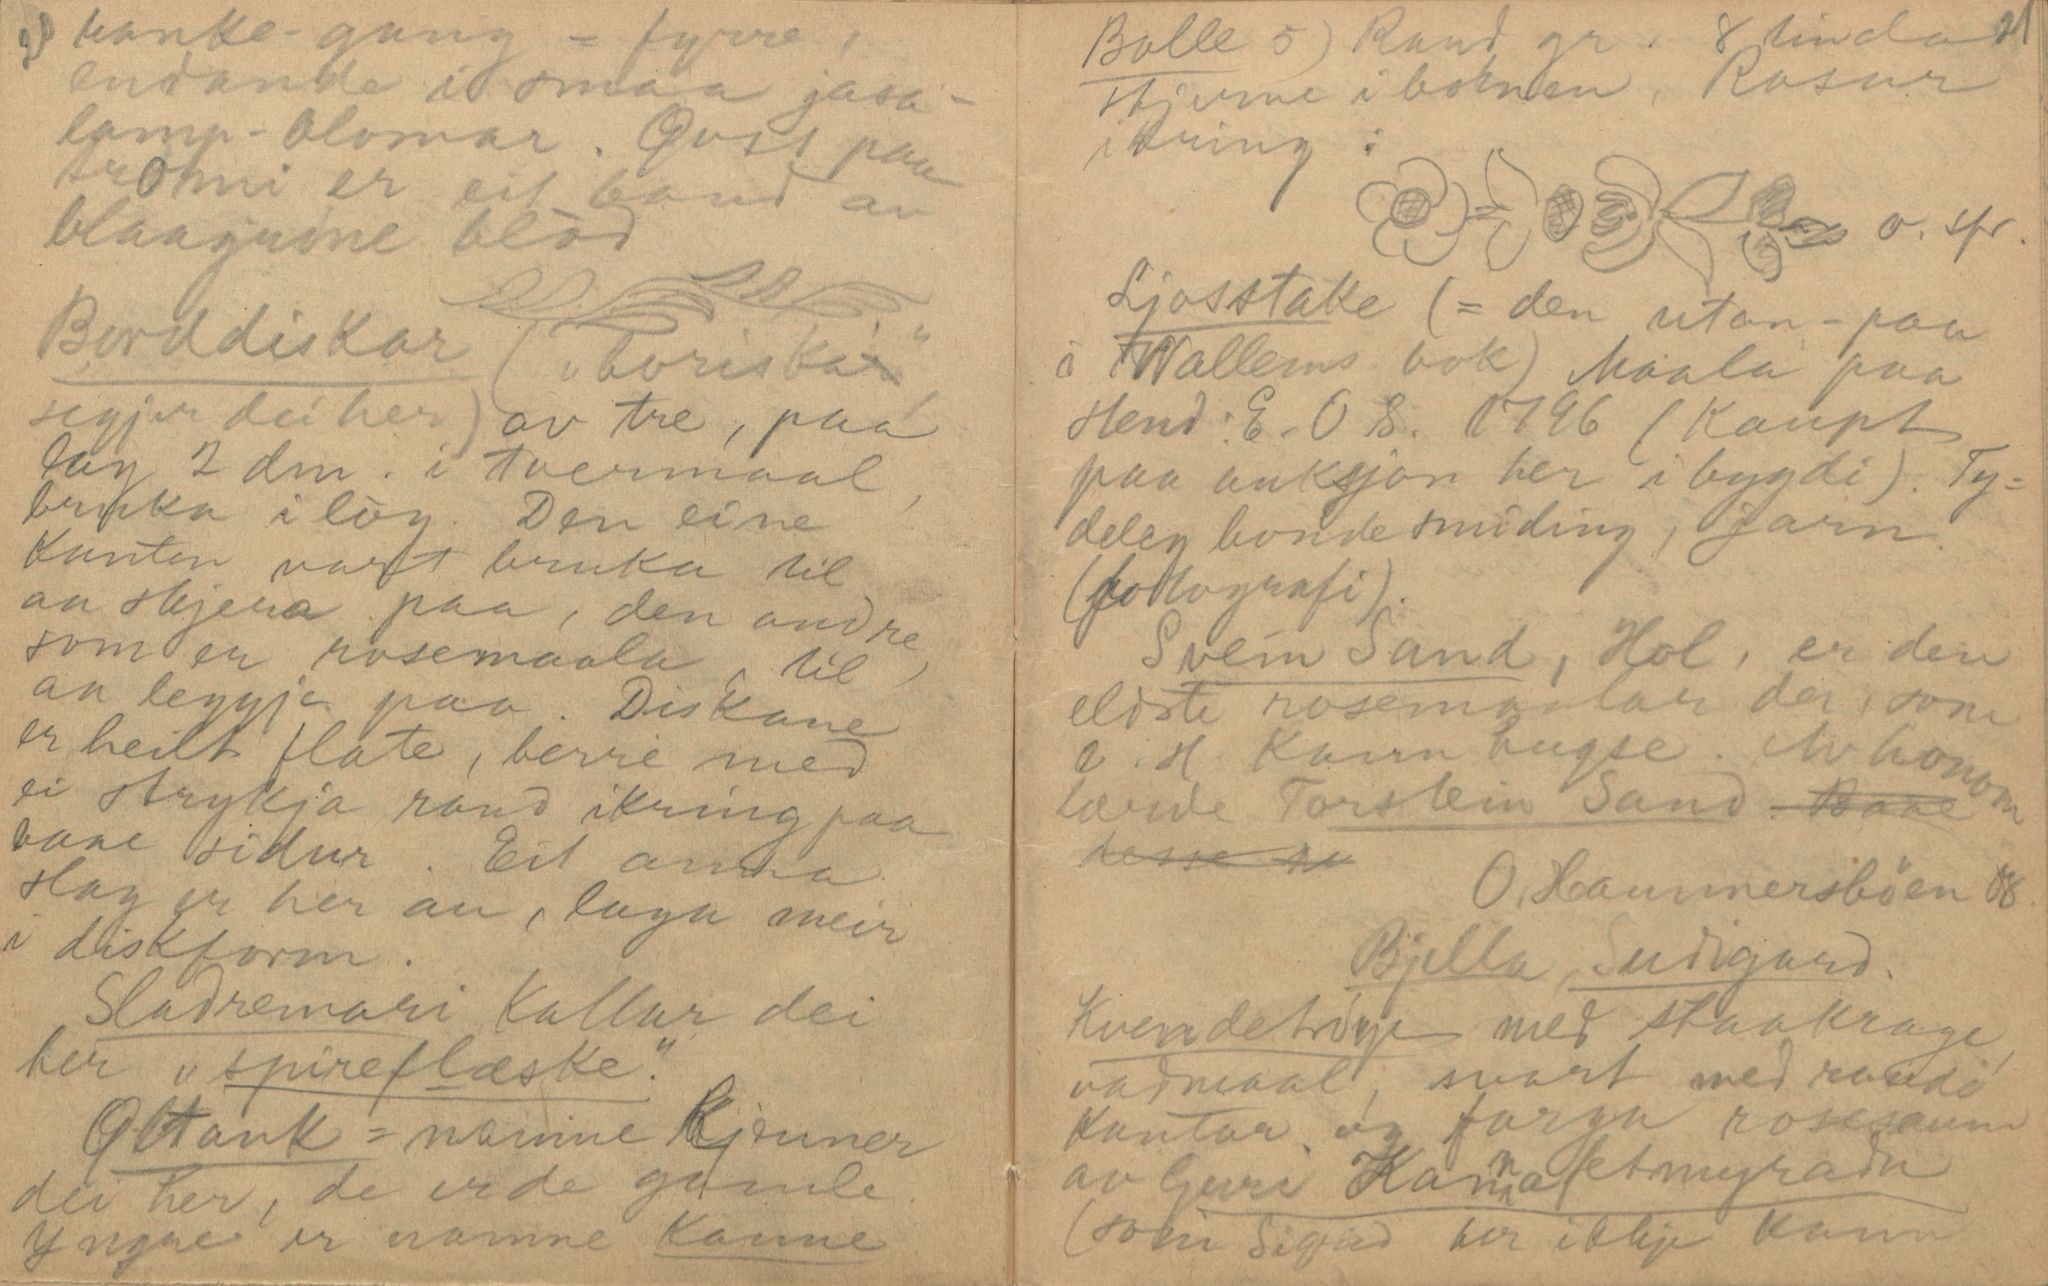 hanke-gang = fyrre,
endande i smaa jasa-
lamp-blomar. Øvst paa
tromi er eit band av
blaagrøne blòd
Borddiskar („boriskar"
segjer dei her) av tre, paa
lag 2 dm. i tvermaal,
bruka i lòg. Den eine
kanten vart bruka til
aa skjera paa, den andre,
som er rosemaala, til
aa leggja paa. Diskane
er heilt flate, berre med
ei strykja rand ikring paa
baae sidur. Eit anna
slag er her au, laga meir
i diskform.
Sladremari kallar dei
her „spireflæske".
Øltank = namne kjenner
dei her, de er de gamle.
Yngre er namne Kanne
21
Bolle 5) Rand gr. 8 tinda
stjerne i botnen, Rosur
ikring:
o. spr.
Ljosstake (= den utan-paa
i Wallems bok) Maala paa
stend: E. O S. 1796 (Kaupt
paa auksjon her i bygdi). Ty-
deleg bondesmiding, jarn.
(fotografi).
Svein Sand, Hol, er den
eldste rosemaalar dei, som
e. H. kann hugse. Av honom
lærde Torstein Sand. Baae
desse
O. Hammersbøen 78.
Bjella, Sudigard.
Kvendetrøye med staakrage,
vadmaal, svart med raude
kantar og farga rosesaum
av Guri Kannasetmyradn
(som Sigrid her ikkje kann